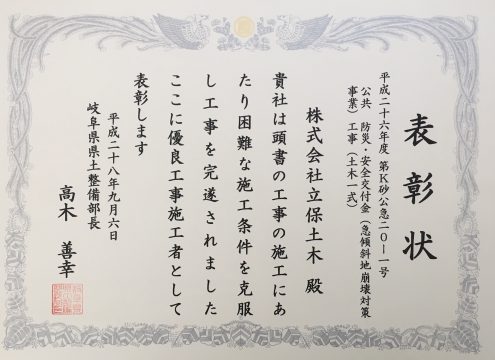 表彰状
平成二十六年度 第K砂公急二〇ー一号
公共 防災・安全交付金（急傾斜地崩壊対策
事業）工事（土木一式）
株式会社立保土木 殿
貴社は頭書の工事の施工にあ
たり困難な施工条件を克服
し工事を完遂されました
ここに優良工事施工者として
表彰します
平成二十八年九月六日
岐阜県県土整備部長
高木 善幸